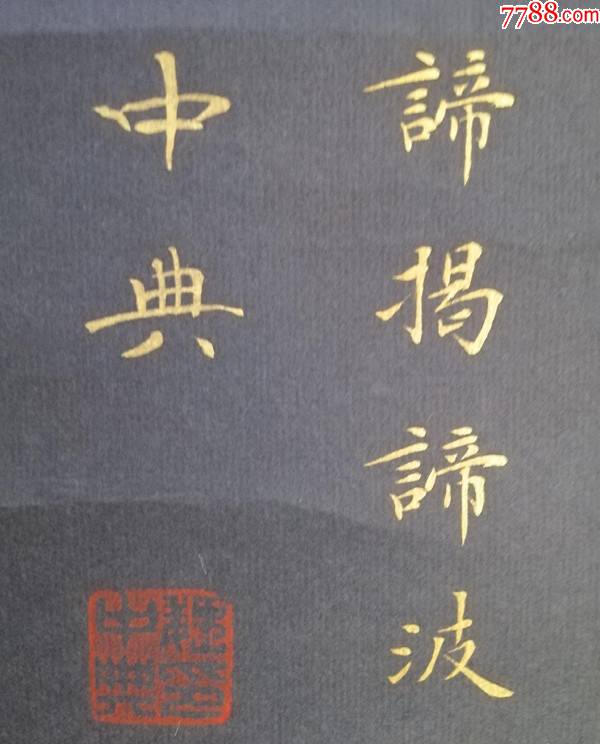 7788.com
諦揭諦波
中典